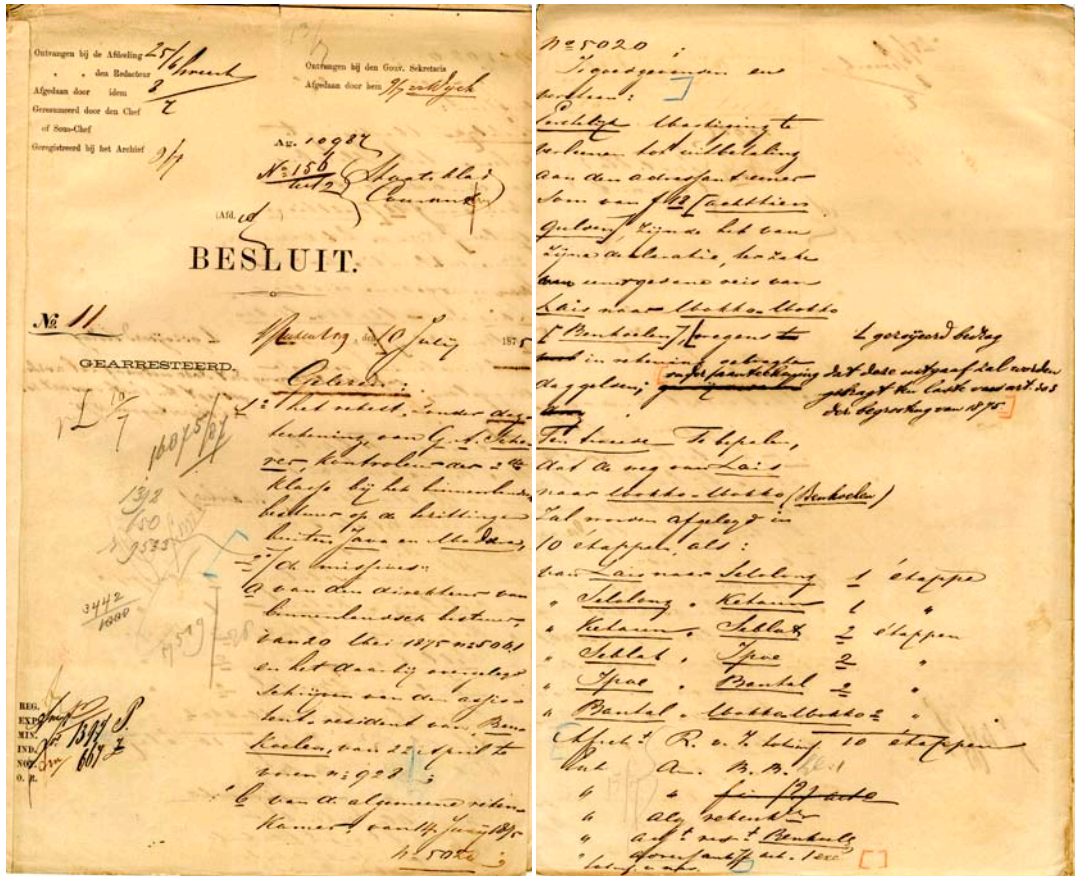 Ontvangen bij de Afdeeling 25/6
" " den Redacteur
Afgedaan door idem 8/7
Geresumeerd door den Chef
of Sous-Chef
Geregistreerd bij het Archief 9/7
Ontvangen bij den Gouv. Sekretaris
Afgedaan door hem 9/7
Ag. 10987
No 156
Staatsblad
Courant
(Afd.
BESLUIT.
No. 11
den 10 Julij 1875
GEARRESTEERD.
Gelezen:
1o het rekest, zonder dag-
teekening, van G. A.
kontroleur der 2de
klasse bij het binnenlandsch
bestuur op de bezittingen
buiten Java en Madura,
2o de missives:
a van den direkteur van
binnenlandsch bestuur
van 20 Mei 1875 no 5061
en het daarbij overgelegd
schrijven van den assis-
tent-resident van Ben-
koelen, van 22 April te
voren no 928;
b van de algemeene reken-
kamer van 14 Junij 1875
no 5020;
10/7
16075/07
13/2
150
9535
3442
1000
REG.
EXP.
MIN. 1397 P.
IND. 667 Z
NOT.
O. R.
no 5020;
Is goedgevonden en
verstaan:
Eerstelijk Magtiging te
verleenen tot uitbetaling
aan den adressant eener
som van f 18 (achttien
gulden) zijnde het van
zijne declaratie, ter zake
eener gedane reis van
Lais naar Mokko-Mokko
(Benkoelen), wegens te
in rekening gebragte
daggelden; onder aanteekening
geroijeerd bedrag
dat deze uitgaaf zal worden
gebragt ten laste van art. 203
der begrooting van 1875
Ten tweede Te bepalen,
dat de weg van Lais
naar Mokko-Mokko (Benkoelen)
zal worden afgelegd in
10 étappen, als:
van Lais naar Selolong 1 étappe
" Selolong " Ketaun 1 "
" Ketaun " Seblat 2 étappen
" Seblat " Ipoe 2 "
" Ipoe " Bantal 2 "
" Bantal " Mokko Mokko 2 "
Afscht R. v. I. 10 étappen
Ext An. B. B.
" " fin
" alg rekenkr
" asst rest Benkoelen
"